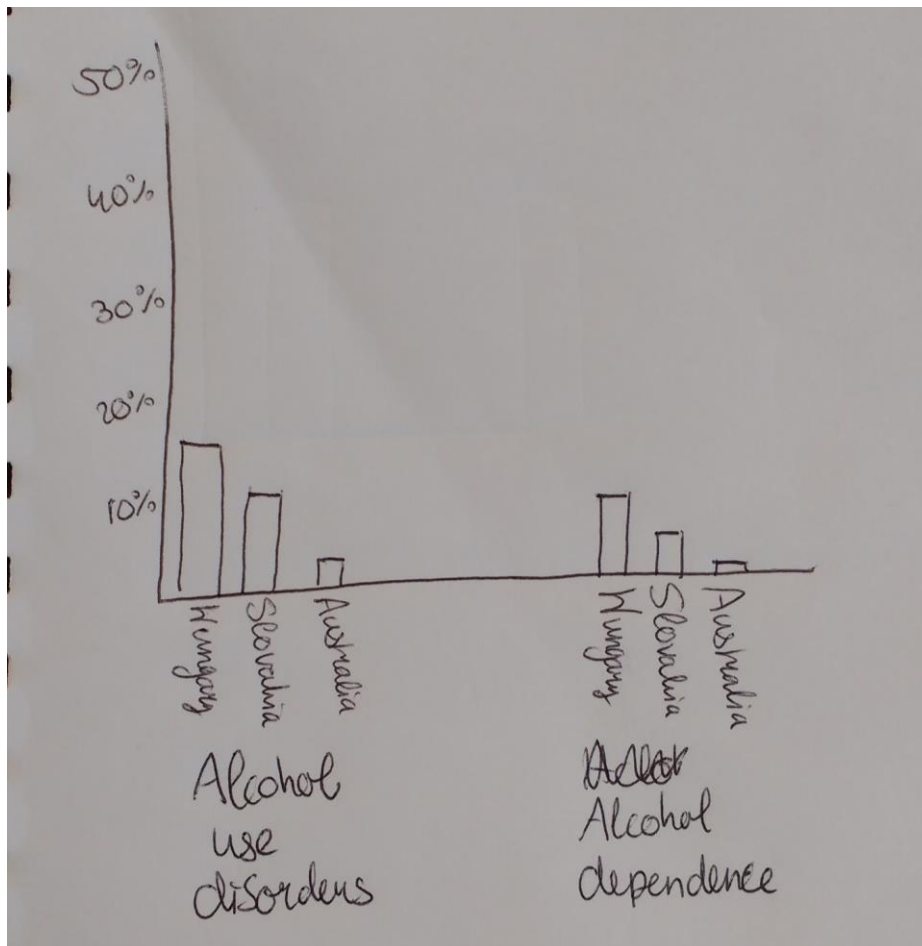 50%
40%
30%
20%
10%
Hungary
Slovakia
Australia
Hungary
Slovakia
Australia
Alcohol
use
disorders
Alcohol
dependence